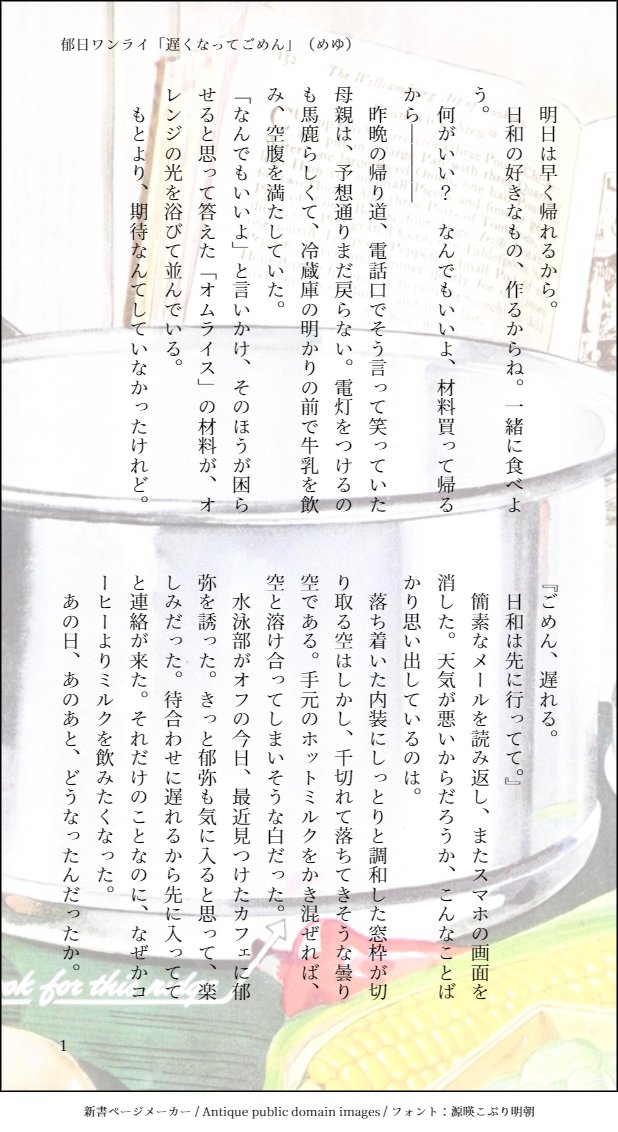 郁日ワンライ「遅くなってごめん」（めゆ）
明日は早く帰れるから。
日和の好きなもの、作るからね。一緒に食べよ
う。
何がいい？　なんでもいいよ、材料買って帰る
から――――
昨晩の帰り道、電話口でそう言って笑っていた
母親は、予想通りまだ戻らない。電灯をつけるの
も馬鹿らしくて、冷蔵庫の明かりの前で牛乳を飲
み、空腹を満たしていた。
「なんでもいいよ」と言いかけ、そのほうが困ら
せると思って答えた「オムライス」の材料が、オ
レンジの光を浴びて並んでいる。
もとより、期待なんてしていなかったけれど。
『ごめん、遅れる。
日和は先に行ってて。』
簡素なメールを読み返し、またスマホの画面を
消した。天気が悪いからだろうか、こんなことば
かり思い出しているのは。
落ち着いた内装にしっとりと調和した窓枠が切
り取る空はしかし、千切れて落ちてきそうな曇り
空である。手元のホットミルクをかき混ぜれば、
空と溶け合ってしまいそうな白だった。
水泳部がオフの今日、最近見つけたカフェに郁
弥を誘った。きっと郁弥も気に入ると思って、楽
しみだった。待合わせに遅れるから先に入ってて
と連絡が来た。それだけのことなのに、なぜかコ
ーヒーよりミルクを飲みたくなった。
あの日、あのあと、どうなったんだったか。
152
The Williamsburg Art of
ok for this
1
新書ページメーカー / Antique public domain images / フォント：源暎こぶり明朝